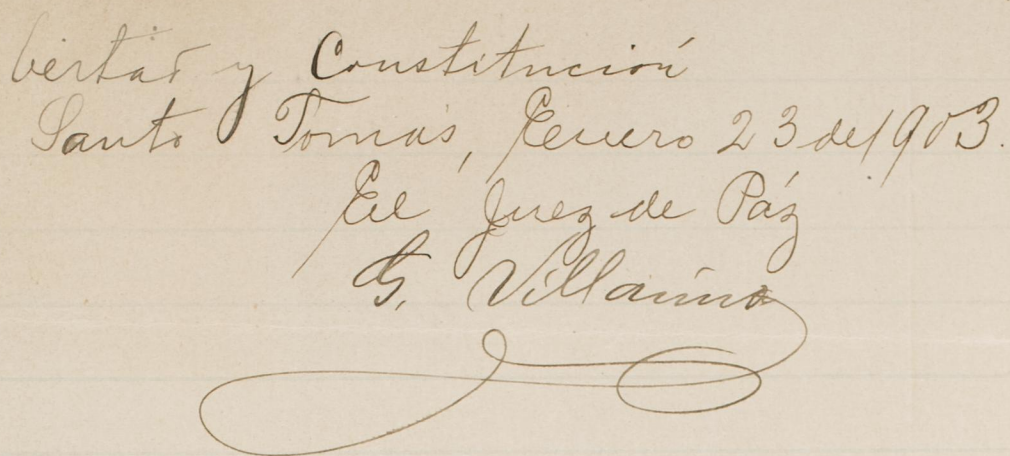 bertad y Constitución
Santo Tomás, Enero 23 de 1903.
El Juez de Páz
G.